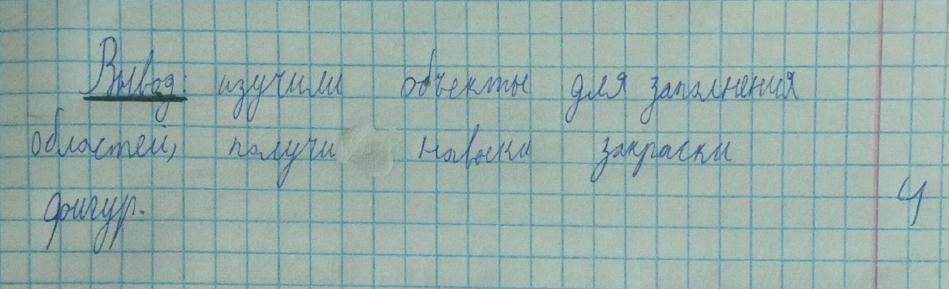 Вывод: изучили объекты для заполнения
областей, получи навыки закраски
фигур.
4